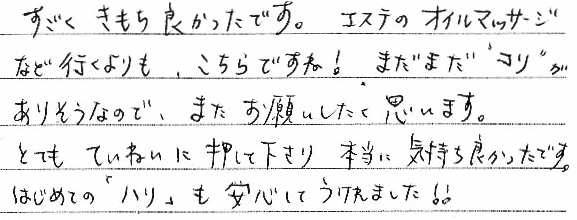 すごく きもち良かったです。 エステの オイルマッサージ
など行くよりも、こちらですね! まだまだ"コリ"が
ありそうなので、また お願いしたく思います。
とても ていねいに 押して下さり 本当に 気持ち良かったです。
はじめての「ハリ」も 安心して うけれました!!